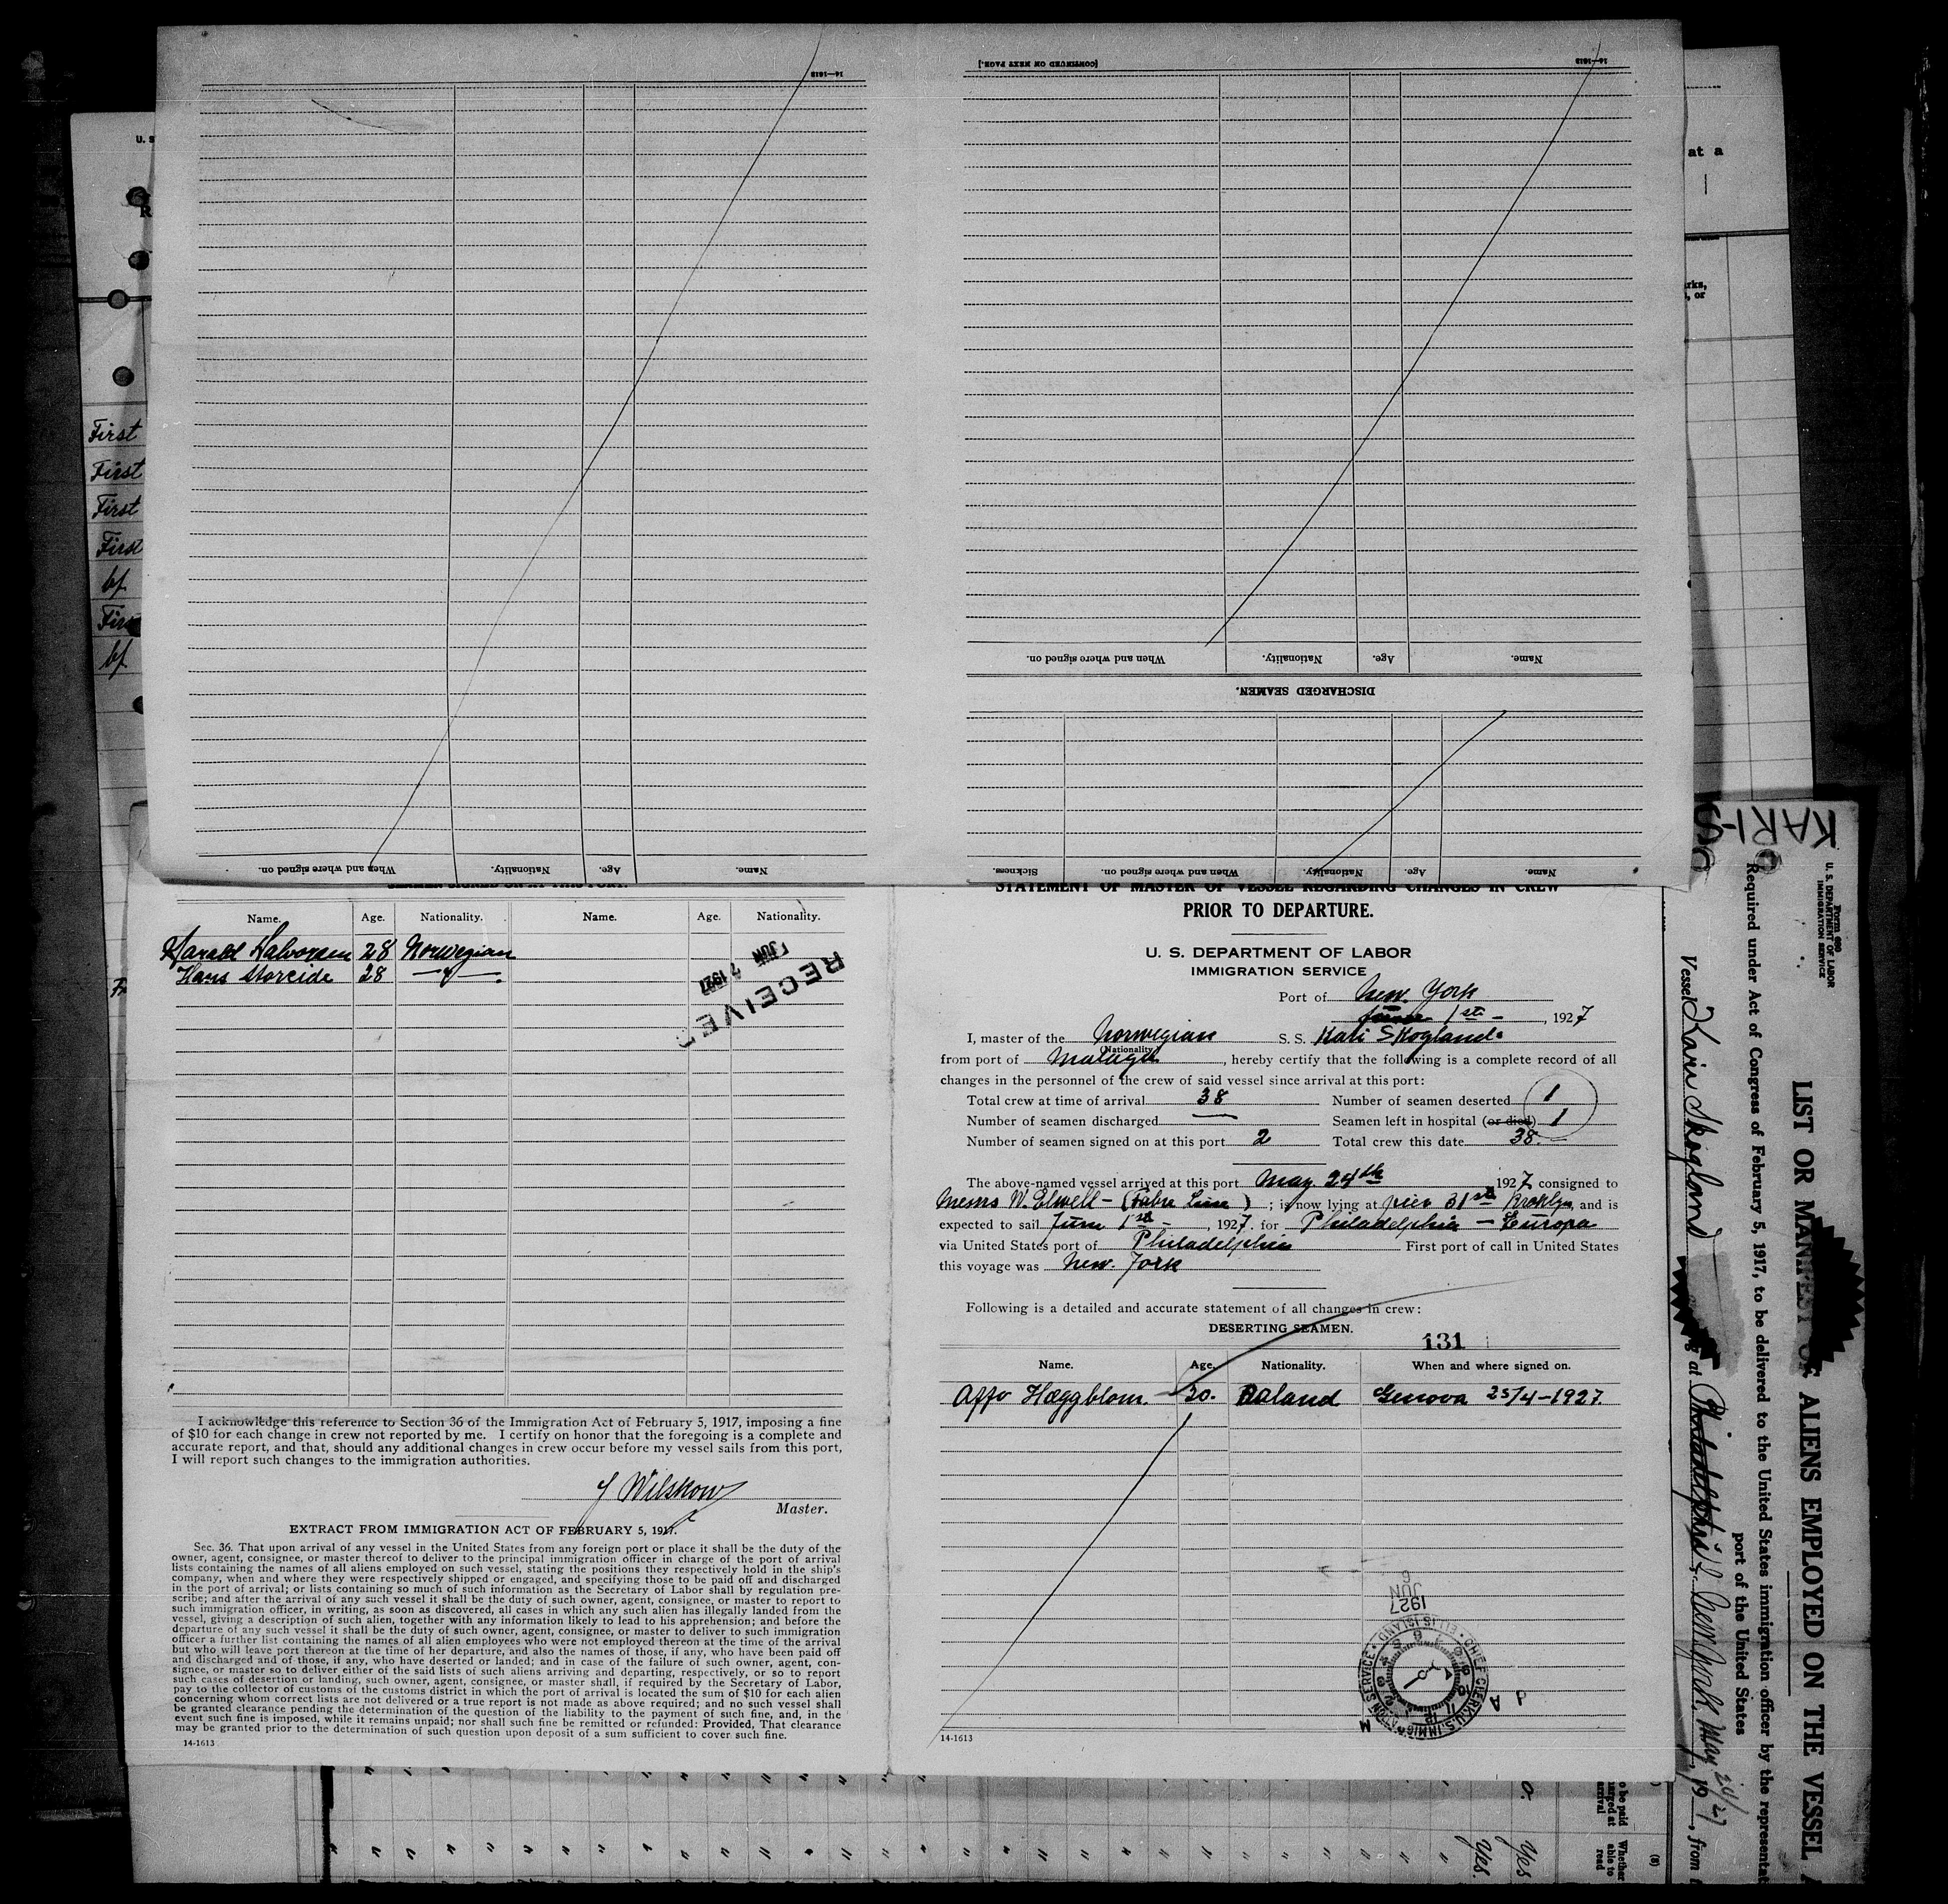 14—1613
Name.
Age.
Nationality.
When and where signed on.
[CONTINUED ON NEXT PAGE.]
14—1613
DISCHARGED SEAMEN.
Name. Age. Nationality. When and where signed on.
Name. Age. Nationality. When and where signed on. Sickness.
U. S
R
First
First
First
First
bf
First
bf
at a
rks,
, or
Name. Age. Nationality. Name. Age. Nationality.
Harald Halvorsen 28 Norwegian
Hans Storeide 28 — " —.
RECEIVED
JUN 7 1927
I acknowledge this reference to Section 36 of the Immigration Act of February 5, 1917, imposing a fine
of $10 for each change in crew not reported by me. I certify on honor that the foregoing is a complete and
accurate report, and that, should any additional changes in crew occur before my vessel sails from this port,
I will report such changes to the immigration authorities.
J Wilskow
Master.
EXTRACT FROM IMMIGRATION ACT OF FEBRUARY 5, 1917.
Sec. 36. That upon arrival of any vessel in the United States from any foreign port or place it shall be the duty of the
owner, agent, consignee, or master thereof to deliver to the principal immigration officer in charge of the port of arrival
lists containing the names of all aliens employed on such vessel, stating the positions they respectively hold in the ship's
company, when and where they were respectively shipped or engaged, and specifying those to be paid off and discharged
in the port of arrival; or lists containing so much of such information as the Secretary of Labor shall by regulation pre-
scribe; and after the arrival of any such vessel it shall be the duty of such owner, agent, consignee, or master to report to
such immigration officer, in writing, as soon as discovered, all cases in which any such alien has illegally landed from the
vessel, giving a description of such alien, together with any information likely to lead to his apprehension; and before the
departure of any such vessel it shall be the duty of such owner, agent, consignee, or master to deliver to such immigration
officer a further list containing the names of all alien employees who were not employed thereon at the time of the arrival
but who will leave port thereon at the time of her departure, and also the names of those, if any, who have been paid off
and discharged and of those, if any, who have deserted or landed; and in case of the failure of such owner, agent, con-
signee, or master so to deliver either of the said lists of such aliens arriving and departing, respectively, or so to report
such cases of desertion or landing, such owner, agent, consignee, or master shall, if required by the Secretary of Labor,
pay to the collector of customs of the customs district in which the port of arrival is located the sum of $10 for each alien
concerning whom correct lists are not delivered or a true report is not made as above required; and no such vessel shall
be granted clearance pending the determination of the question of the liability to the payment of such fine, and, in the
event such fine is imposed, while it remains unpaid; nor shall such fine be remitted or refunded: Provided, That clearance
may be granted prior to the determination of such question upon deposit of a sum sufficient to cover such fine.
14-1613
STATEMENT OF MASTER OF VESSEL REGARDING CHANGES IN CREW
PRIOR TO DEPARTURE.
U. S. DEPARTMENT OF LABOR
IMMIGRATION SERVICE
Port of New. York
June 1st —, 1927
I, master of the Norwegian S. S. Kari Skogland.
(Nationality)
from port of Malaga, hereby certify that the following is a complete record of all
changes in the personnel of the crew of said vessel since arrival at this port:
Total crew at time of arrival 38 Number of seamen deserted 1
Number of seamen discharged — Seamen left in hospital (or died) 1
Number of seamen signed on at this port 2 Total crew this date 38
The above-named vessel arrived at this port May 24th, 1927 consigned to
Messrs W. Elwell — (Fabre Line); is now lying at pier 31st Brooklyn, and is
expected to sail June 1st —, 1927. for Philadelphia — Europa
via United States port of Philadelphia First port of call in United States
this voyage was New. York
Following is a detailed and accurate statement of all changes in crew:
DESERTING SEAMEN.
131
Name. Age. Nationality. When and where signed on.
Affo Hæggblom. — 30. Åland Genova 25/4-1927.
1927
JUN
6
CHIEF CLERK U.S. IMMIGRATION SERVICE • ELLIS ISLAND •
14-1613
KARI-
Form 680
U. S. DEPARTMENT OF LABOR
IMMIGRATION SERVICE
LIST OR MANIFEST OF ALIENS EMPLOYED ON THE VESSEL
Required under Act of Congress of February 5, 1917, to be delivered to the United States immigration officer by the representat
port of the United States
Vessel Kari Skogland at Philadelphia, New York May 24/27, 19, from
o be paid
arged at
arrival
Whether
able to
read
(8)
Yes
Yes.